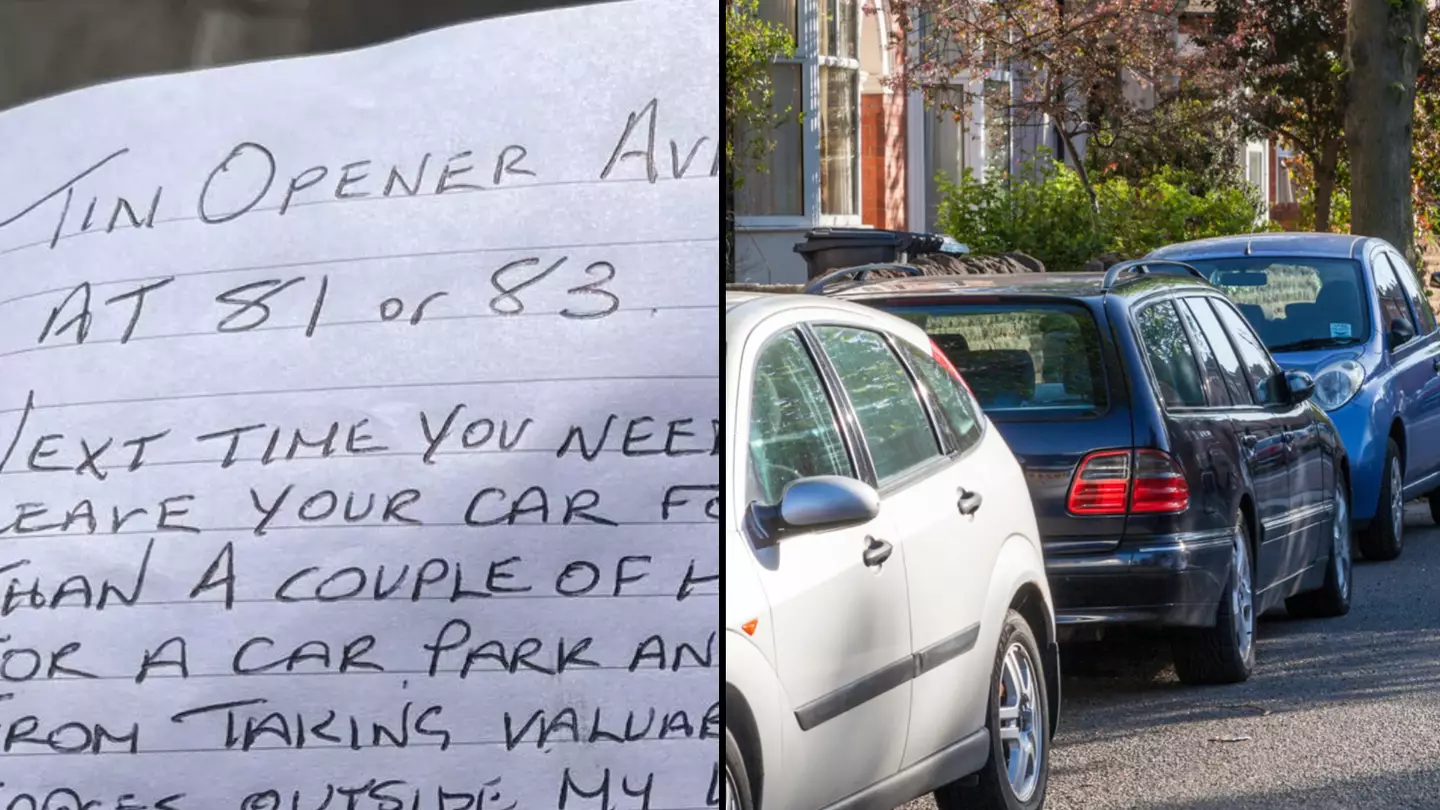 TIN OPENER AV
AT 81 or 83.
NEXT TIME YOU NEE
LEAVE YOUR CAR FO
THAN A COUPLE OF H
FOR A CAR PARK AN
FROM TAKING VALUAB
OUTSIDE MY